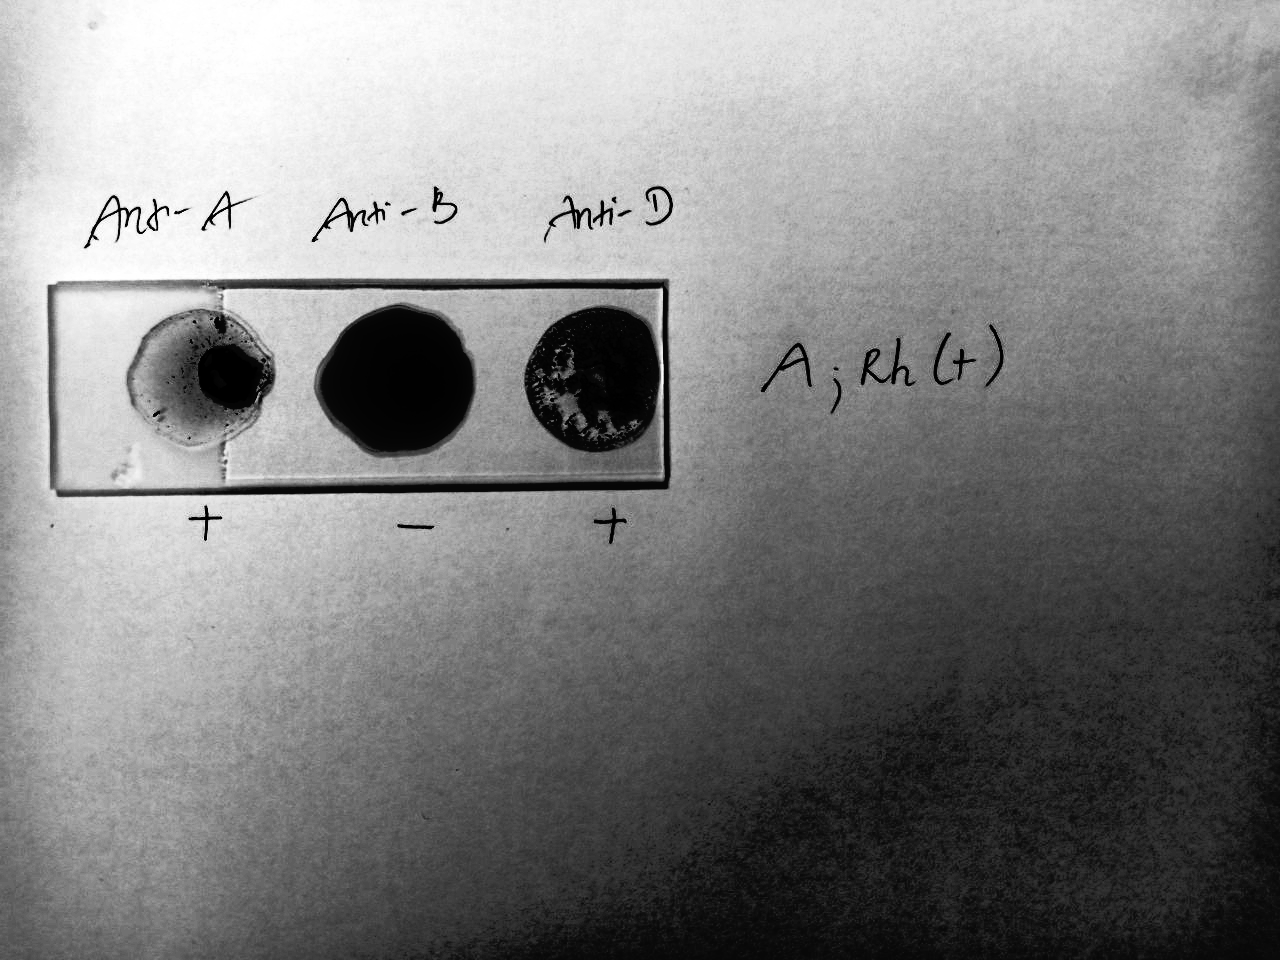 Anti-A Anti-B Anti-D
A; Rh (+)
+ - +